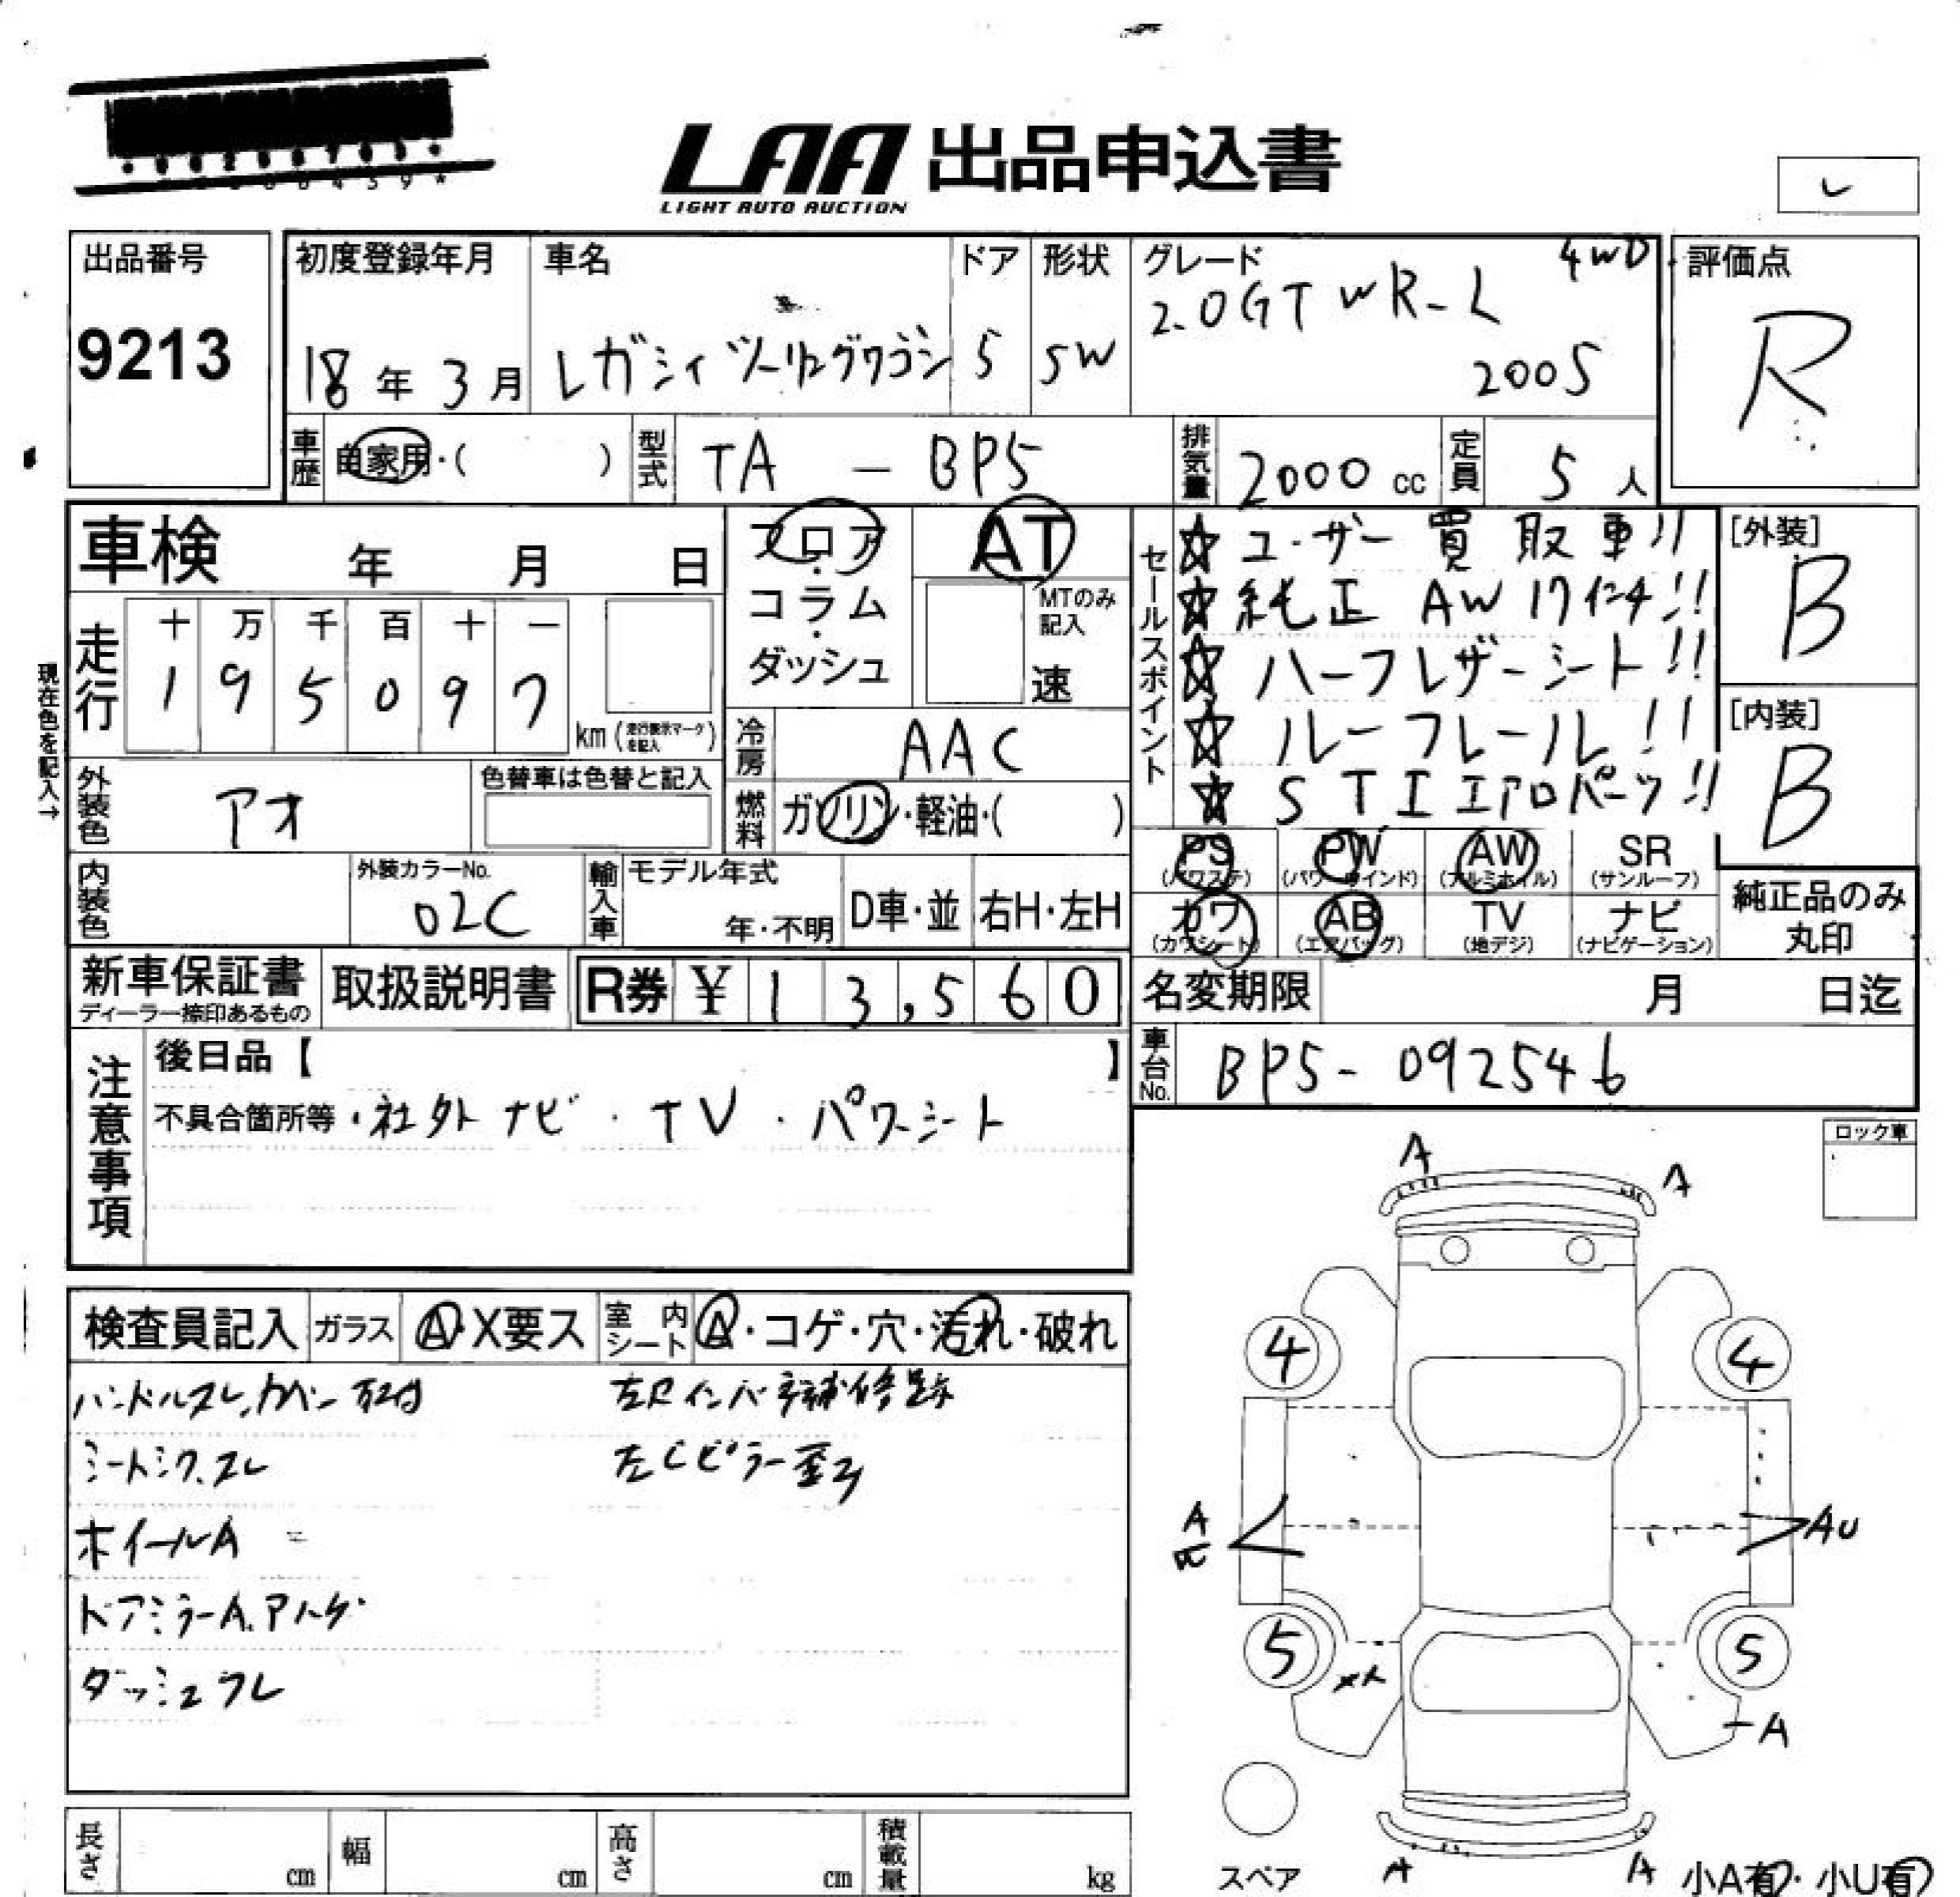 LAA 出品申込書
LIGHT AUTO AUCTION
レ
出品番号
9213
初度登録年月
18年 3月
車名
レガシィツーリングワゴン
ドア
5
形状
SW
グレード
4WD
2.0GT WR-L
2005
評価点
R
車歴 自家用・( )
型式 TA - BP5
排気量 2000 cc
定員 5 人
車検 年 月 日
フロア・コラム・ダッシュ
AT
MTのみ記入
速
走行
十 万 千 百 十 一
1 9 5 0 9 7
km (走行表示マークを記入)
現在色を記入→
冷房 AAC
外装色 アオ
色替車は色替と記入
燃料 ガソリン・軽油・( )
内装色
外装カラーNo.
02C
輸入車
モデル年式
年・不明
D車・並
右H・左H
セールスポイント
☆ユーザー買取車!!
☆純正 AW 17インチ!!
☆ハーフレザーシート!!
☆ルーフレール!!
☆STIエアロパーツ!!
[外装]
B
[内装]
B
PS (パワステ)
PW (パワーウインド)
AW (アルミホイル)
SR (サンルーフ)
カワ (カワシート)
AB (エアバッグ)
TV (地デジ)
ナビ (ナビゲーション)
純正品のみ
丸印
新車保証書
ディーラー捺印あるもの
取扱説明書
R券 ¥ 13,560
名変期限 月 日迄
車台No. BP5-092546
注意事項
後日品【 】
不具合箇所等・社外ナビ・TV・パワーシート
ロック車
検査員記入
ガラス A・X要ス
室内シート A・コゲ・穴・汚れ・破れ
ハンドルスレ、カバー
シートシワ、スレ
ホイールA
ドアミラーA.アハゲ
ダッシュワレ
左Rインパネ補修跡
左Cピラー歪み
A
A
4
4
A
AU
5
5
A
スペア
A
A
小A有・小U有
長さ cm
幅 cm
高さ cm
積載量 kg